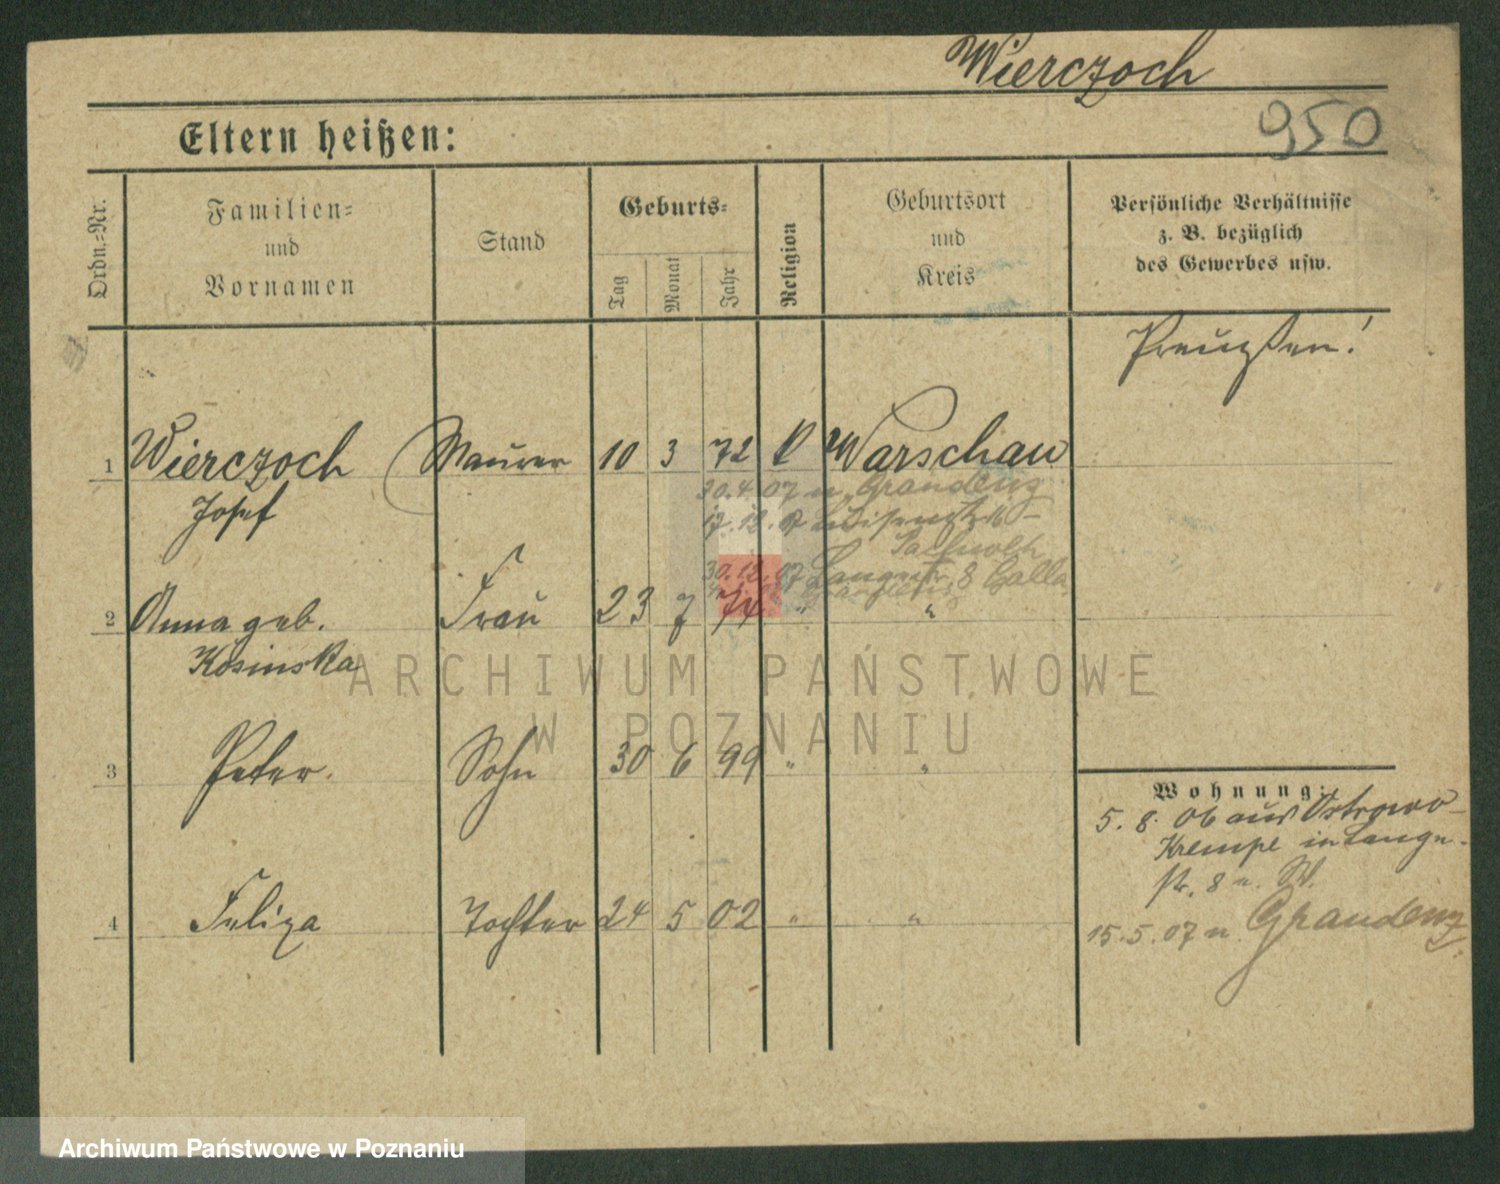 Wierczoch
950
Eltern heißen:
Ordn.=Nr.
Familien=
und
Vornamen
Stand
Geburts=
Tag
Monat
Jahr
Religion
Geburtsort
und
Kreis
Persönliche Verhältnisse
z. B. bezüglich
des Gewerbes usw.
Preußen!
1 Wierczoch Maurer 10 3 72 K Warschau
Josef
30.4.07 n. Graudenz
17.12.
30.12.07 Langestr. 8
2 Anna geb. Frau 23 7 74 " "
Kosinska
3 Peter. Sohn 30 6 99 " "
4 Feliza Tochter 24 5 02 " "
Wohnung:
5. 8. 06 aus Ostrowo-
Krempe in Lange-
str. 8 n.
15.5.07 n. Graudenz
ARCHIWUM PAŃSTWOWE
W POZNANIU
Archiwum Państwowe w Poznaniu